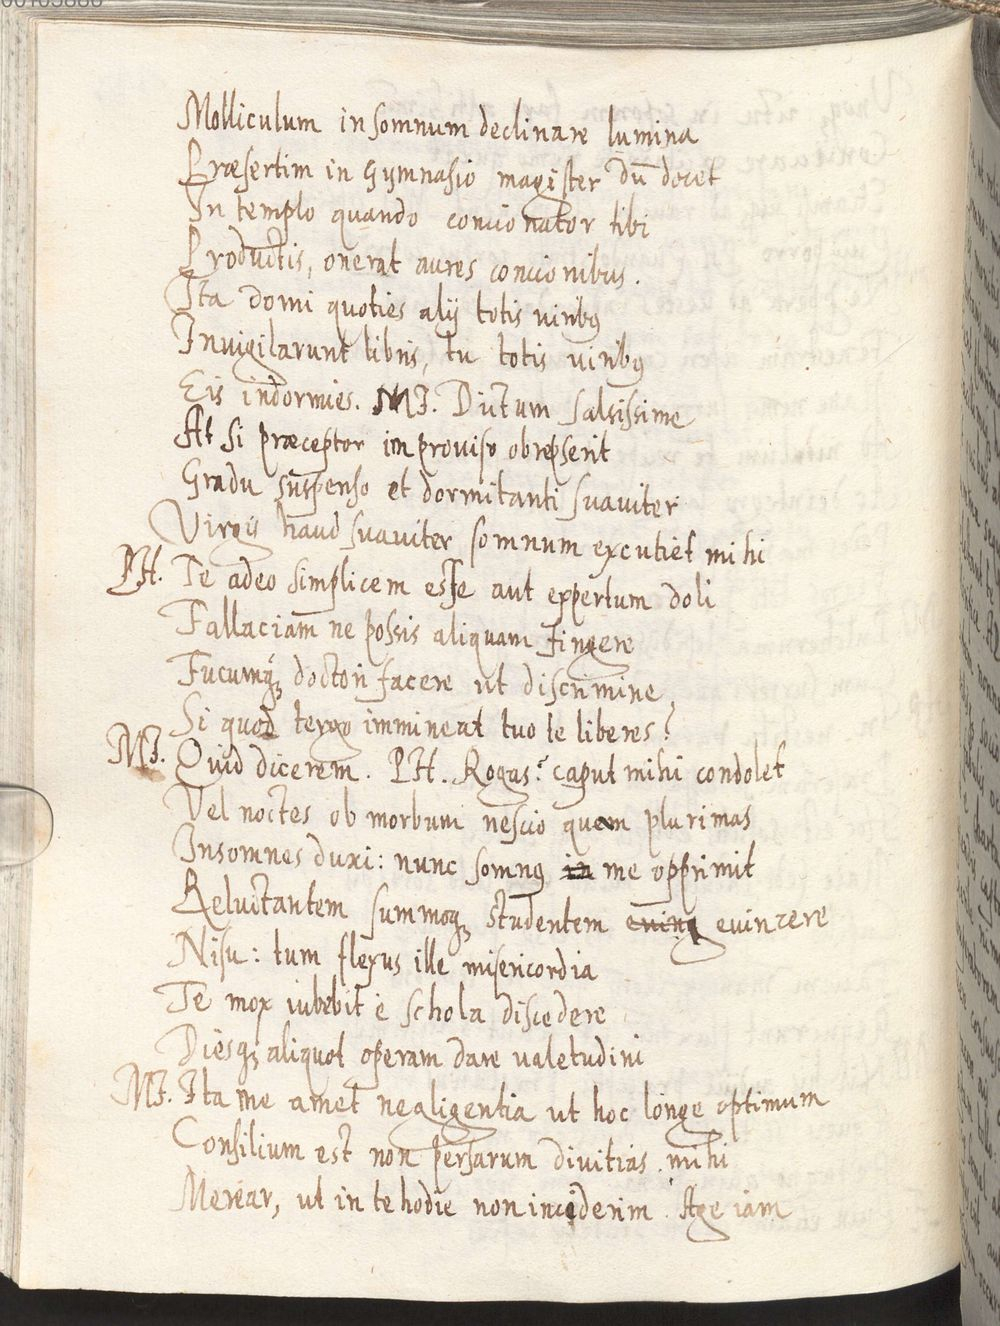 Molliculum in somnum declinare lumina
Præsertim in Gymnasio magister dũ docet
In templo quando concionator tibi
Productis, onerat aures concionibus.
Ita domi quoties alij totis uiribꝰ
Inuigilarunt libris, tu totis uiribꝰ
Eis indormies. MI. Dictum salsissime
At si præceptor improuiso obrepserit
Gradu suspenso et dormitanti suauiter
Virgis haud suauiter somnum excutiet mihi
PH. Te adeo simplicem esse aut expertum doli
Fallaciam ne possis aliquam fingere
Fucumq́ꝫ doctori facere ut discrimine,
Si quod tergo immineat tuo te liberes?
MI. Quid dicerem. PH. Rogas? caput mihi condolet
Vel noctes ob morbum nescio quem plurimas
Insomnes duxi: nunc somnꝰ in me opprimit
Reluctantem summoqꝫ studentem euincere
Nisu: tum flexus ille misericordia
Te mox iubebit è schola discedere
Diesqꝫ aliquot operam dare ualetudini
MI. Ita me amet negligentia ut hoc longe optimum
Consilium est non persarum diuitias mihi
Merear, ut in te hodie non inciderim. Age iam